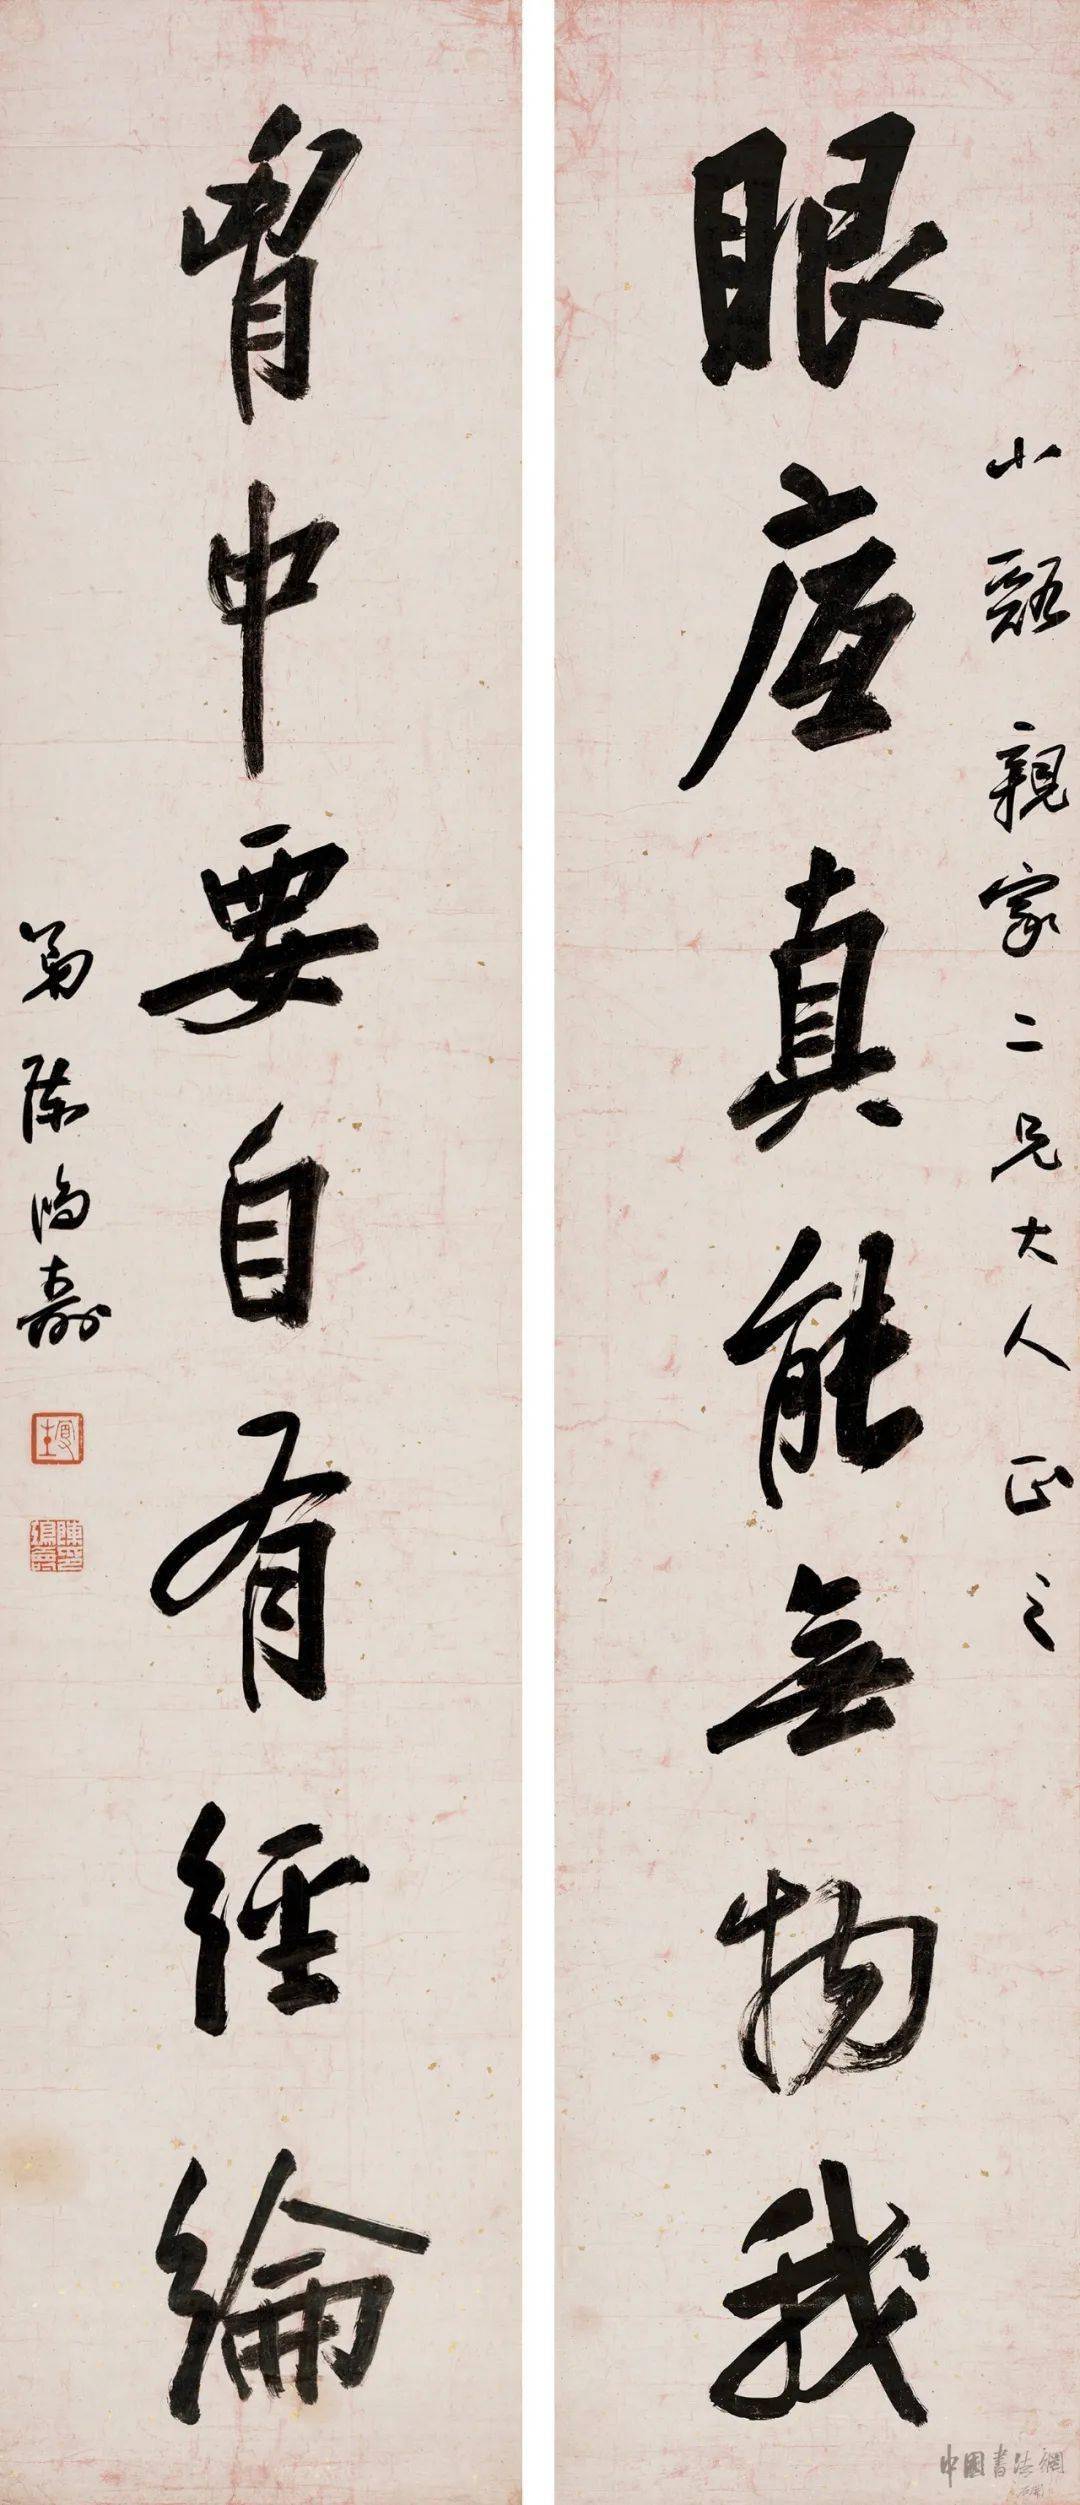 小谿親家二兄大人正之
眼底真能無物我
胷中要自有經綸
弟陳鴻壽
曼生
陳鴻壽印
中國書法網